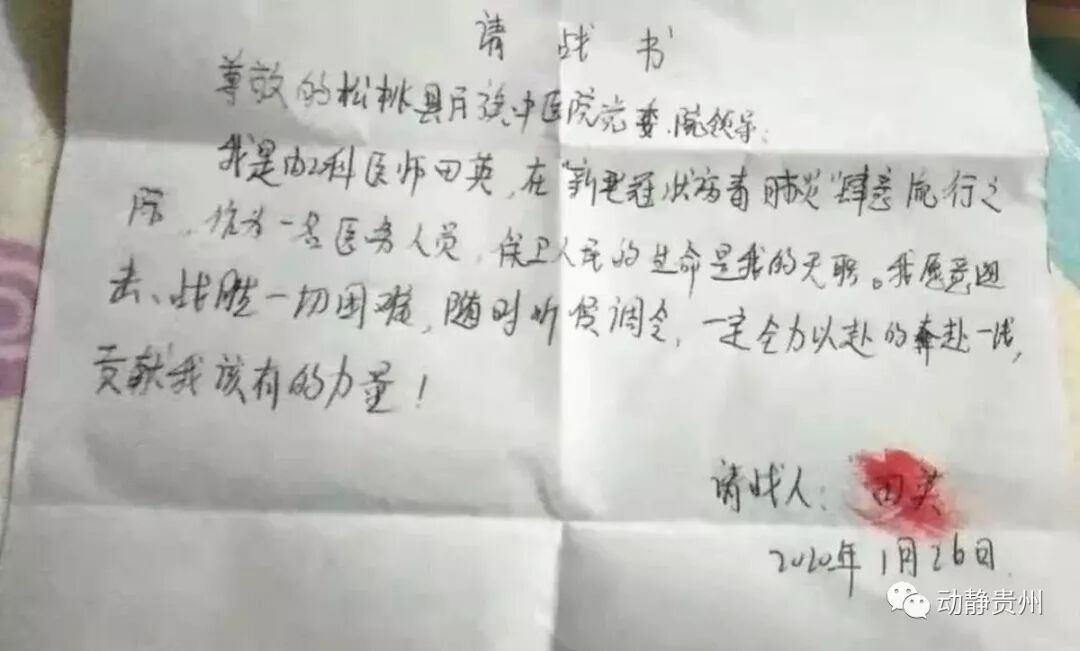 请战书
尊敬的松桃县民族中医院党委、院领导：
我是内2科医师田英，在“新型冠状病毒肺炎”肆意流行之
际，作为一名医务人员，保卫人民的生命是我的天职。我愿意
去、战胜一切困难，随时听候调令，一定全力以赴的奔赴一线，
贡献我该有的力量！
请战人：田英
2020年1月26日
动静贵州